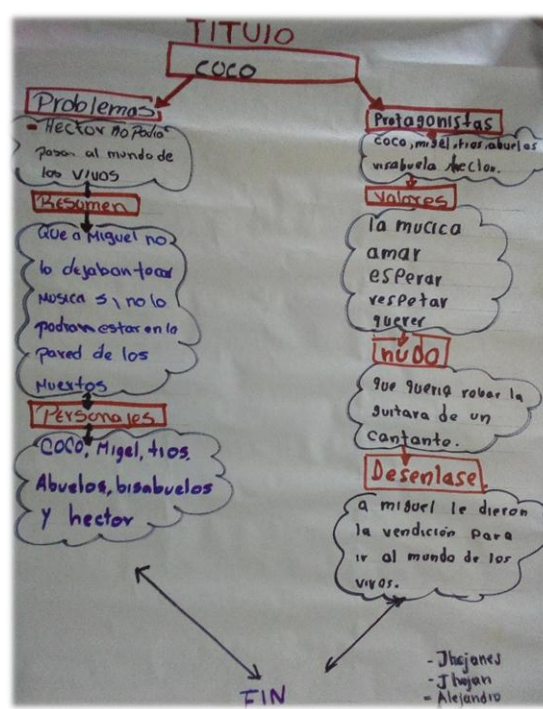 TITUlO
COCO
Problemas
- Hector no Podia
pasar al mundo de
los vivos
Resumen
Que a Miguel no
lo dejaban tocar
Musica si no lo
podian estar en la
pared de los
Muertos
Personajes
COCO, Migel, tios,
Abuelos, bisabuelos
y hector
Protagonistas
coco, migel, tios, abuelos
visabuela hector.
Valores
la mucica
amar
esperar
respetar
querer
Inudo
que queria robar la
guitara de un
cantante.
Desenlase.
a miguel le dieron
la vendición para
ir al mundo de los
vivos.
FIN
- Jhojanes
- Jhojan
- Alejandro